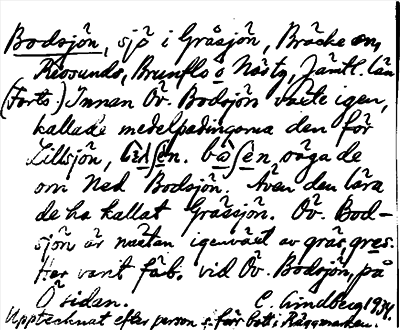 Bodsjön, sjö i Gråsjön, Bräcke sn,
Revsunds, Brunflo o Näs tg, Jämtl. län
(Forts.) Innan Öv. Bodsjön växte igen,
kallade medelpadingarna den för
Lillsjön, sade
om Ned Bodsjön. Även den lära
de ha kallat Gråsjön. Öv. Bod-
sjön är nästan igenväxt av gräs, gres.
Har varit fäb. vid Öv. Bodsjön, på
Ö sidan. C. Lindberg 1934.
Upptecknat efter person s. får bott i